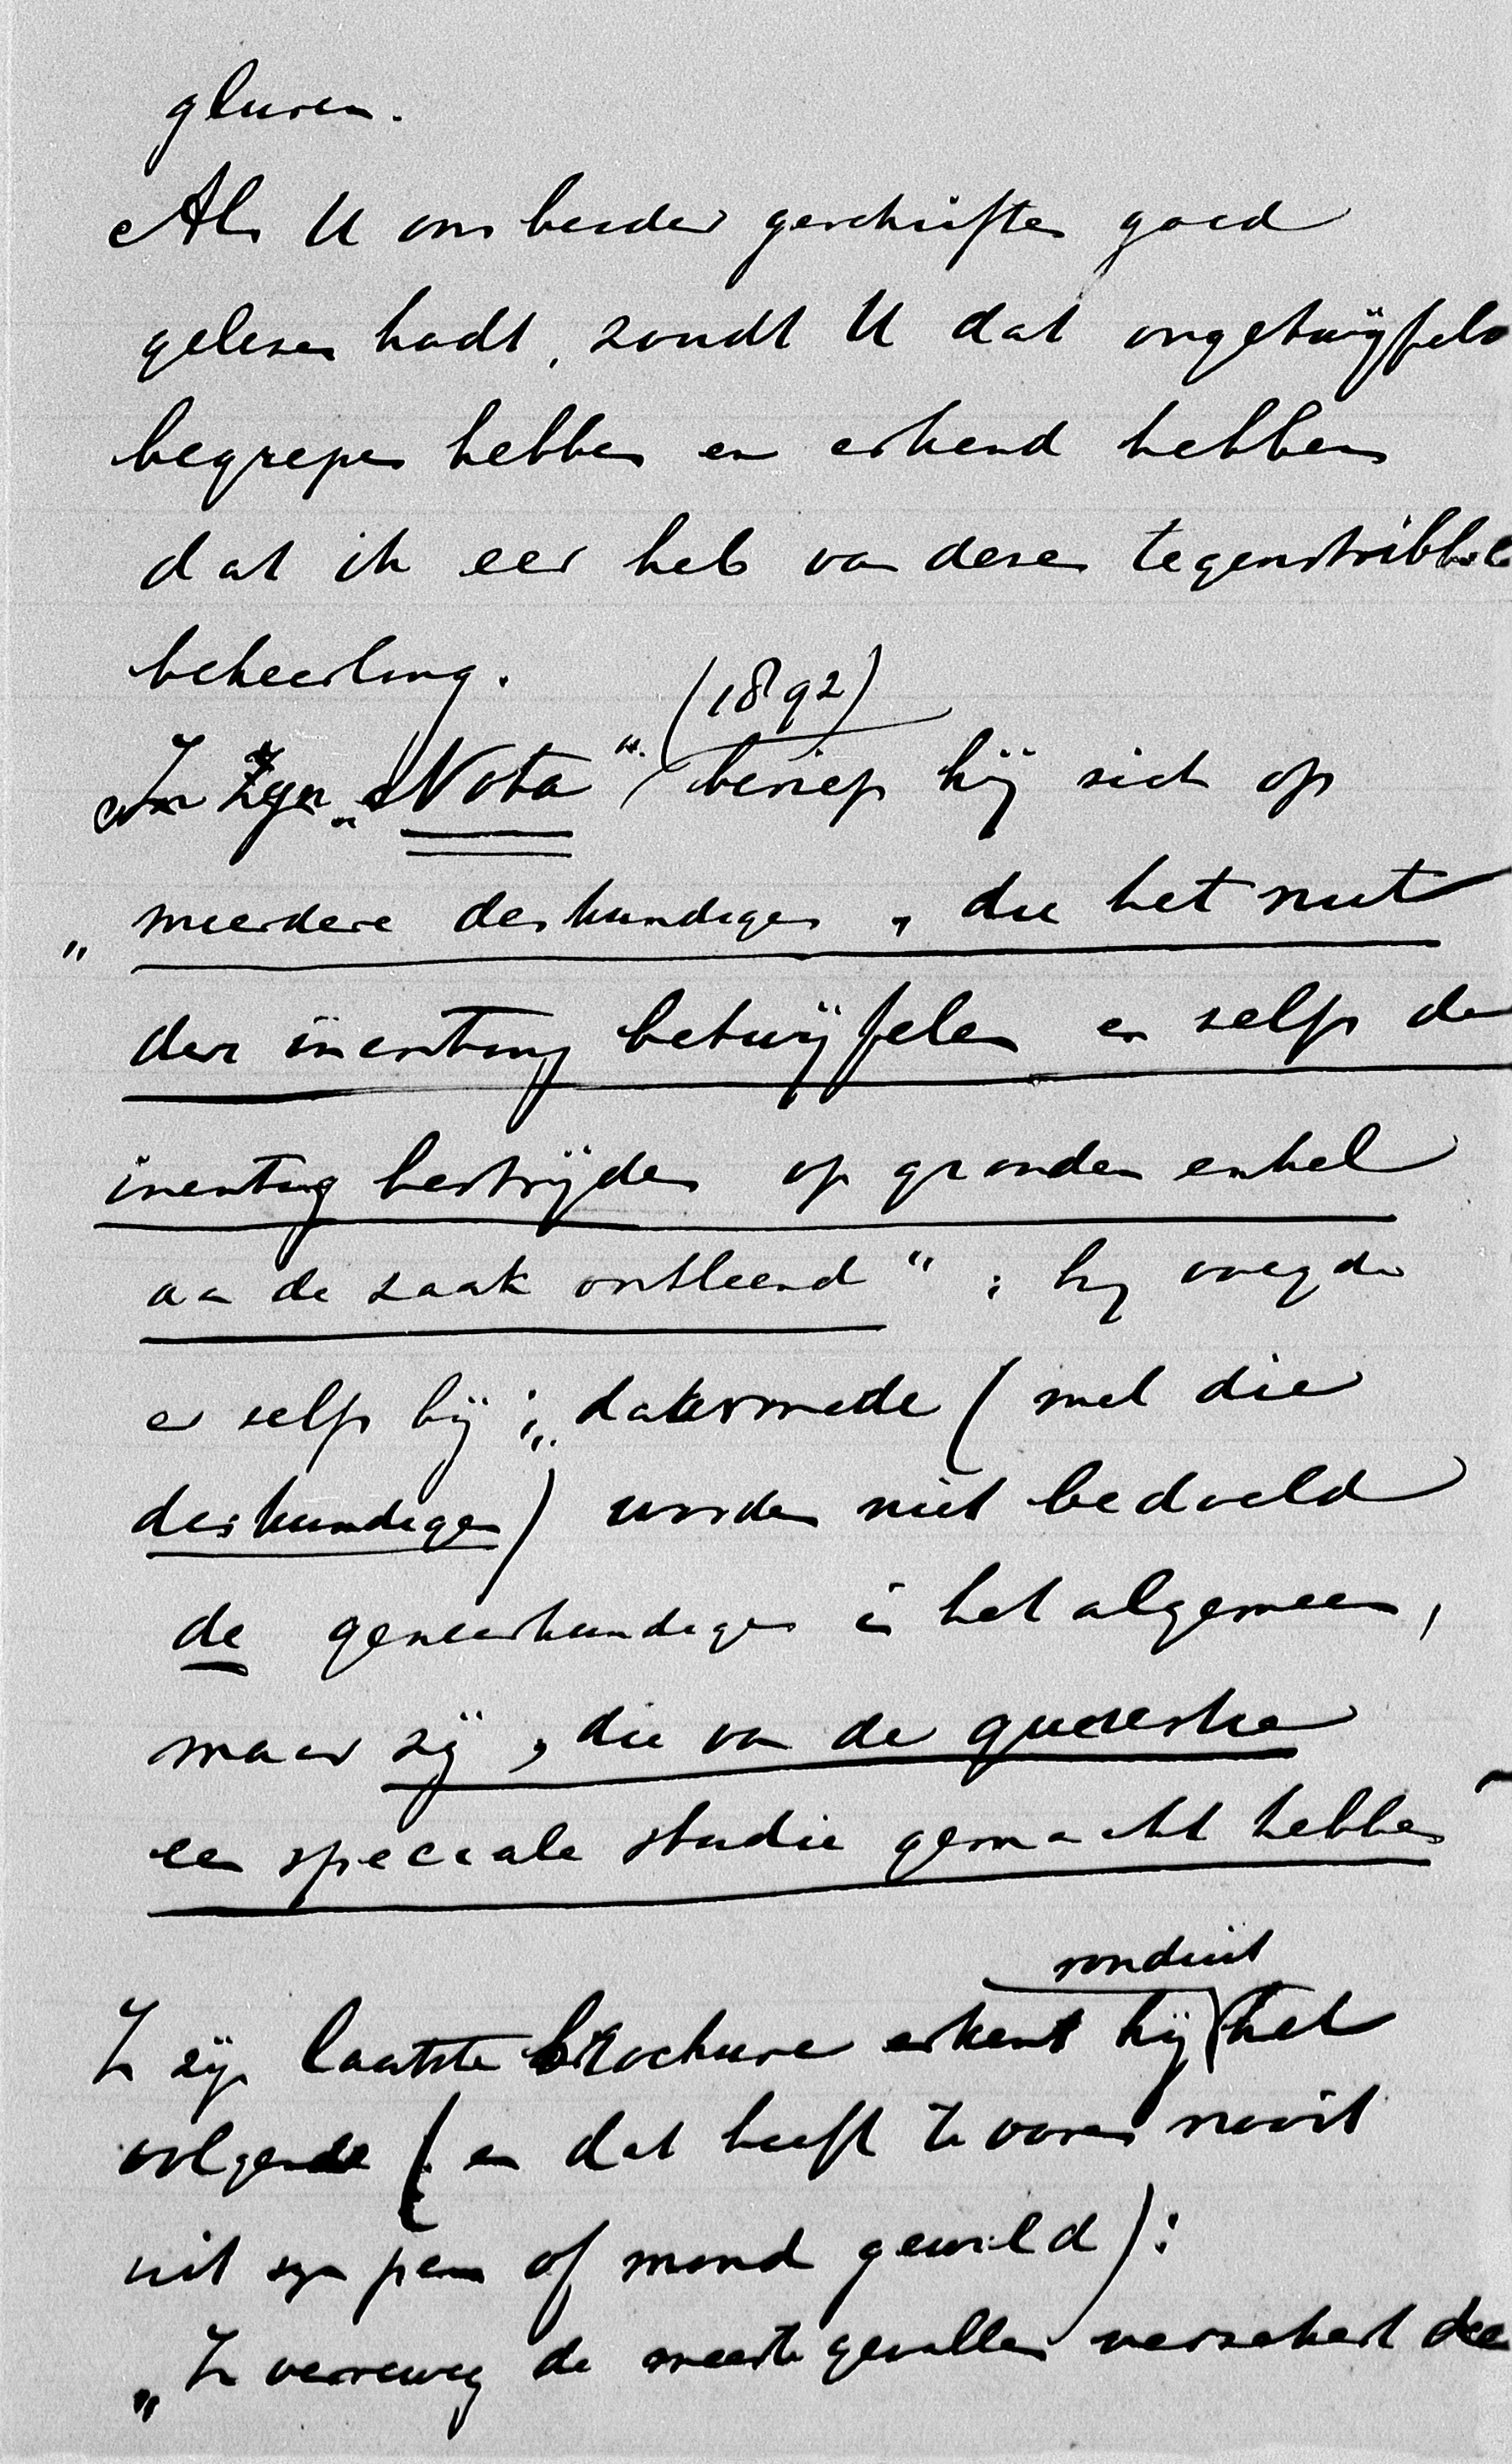 gluren.
Als U ons beider geschriften goed
gelezen hadt, zoudt U dat ongetwijfeld
begrepen hebben en erkend hebben
dat ik eer heb van dezen tegenstribbel
bekeerling.
(1892)
In Zijn „Nota“ beriep hij zich op
„meerdere deskundigen, die het nut
der inenting betwijfelen en zelfs de
inenting bestrijden op gronden enkel
aan de zaak ontleend“; hij voegde
er zelfs bij: „daarmede (met die
deskundigen) worden niet bedoeld
de geneeskundigen in het algemeen,
maar zij, die van de quaestie
een speciale studie gemaakt hebben
ronduit
In zijn laatste brochure erkent hij het
volgende (en dat heeft te voren nooit
uit zijn pen of mond gewild):
„In verreweg de meeste gevallen verzekert de